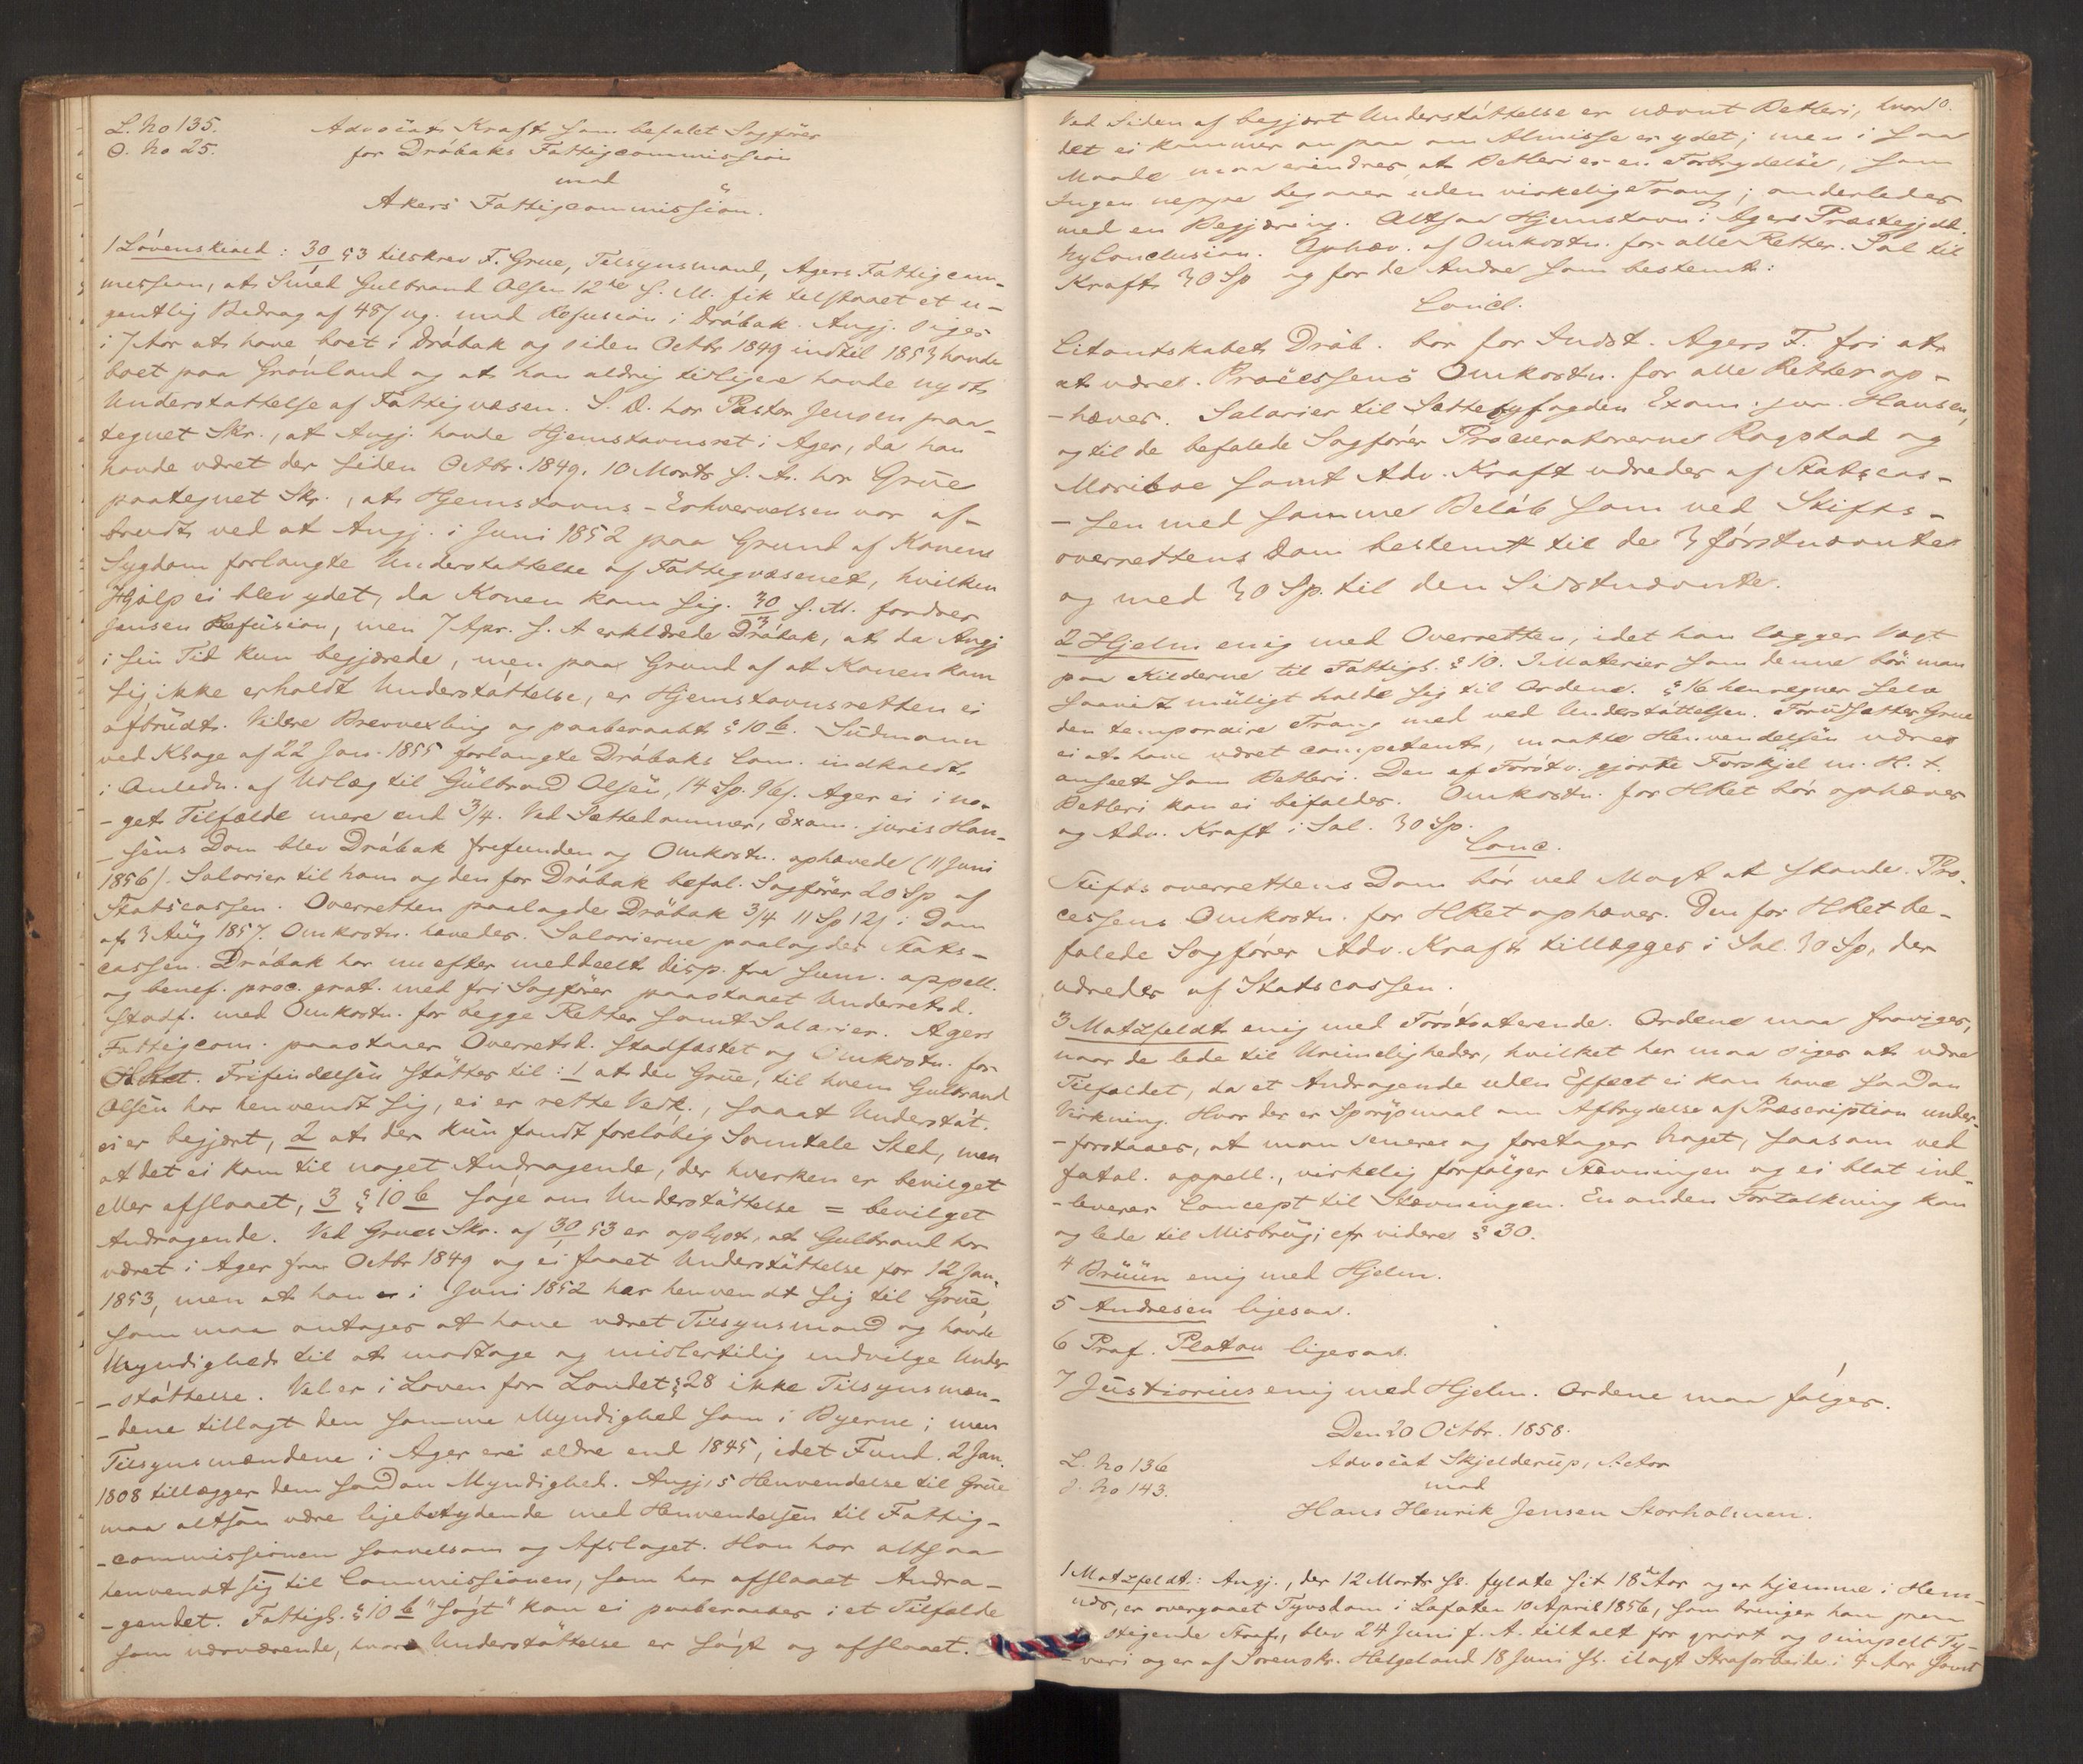 L. No 135.
O. No 25.
Advocat Kraft som befalet Sagfører
for Drøbaks Fattigcommission
mod
Akers Fattigcommission.
1 Løvenskiold: 30/1 53 tilskrev F. Grüe, Tilsynsmand, Agers Fattigcom-
mission, at Smed Gulbrand Olsen 12te s. M. fik tilstaaet et u-
gentlig Bidrag af 48 ß ug. med Refusion i Drøbak. Angj. siges
i 7 Aar at have boet i Drøbak og siden Octbr 1849 indtil 1853 havde
boet paa Grønland og at han aldrig tidligere havde nydt
Understøttelse af Fattigvæsen. S. D. har Pastor Jensen paa-
tegnet Skr., at Angj. havde Hjemstavnsret i Ager, da han
havde været der siden Octbr. 1849. 10 Marts s. A. har Grüe
paategnet Skr., at Hjemstavns-Erhvervelsen var af-
brudt ved at Angj. i Juni 1852 paa Grund af Konens
Sygdom forlangte Understøttelse af Fattigvæsenet, hvilken
Hjælp ei blev ydet, da Konen kom sig. 30/3 s. A. fordrer
Jensen Refusion, men 7 Apr. s. A erklærede Drøbak, at da Angj
i sin Tid kun begjærede, men paa Grund af at Konen kom
sig ikke erholdt Understøttelse, er Hjemstavnsretten ei
afbrudt. Videre Brevvexling og paaberaabt § 10 b. Südmann
ved Klage af 22 Jan. 1855 forlangte Drøbaks Com. indkaldt
i Anledn. af Udlæg til Gülbrand Olsen, 14 Sp. 96 ß. Ager ei i no-
-get Tilfælde mere end 3/4. Ved Sættedommer, Exam. juris Han-
-sens Dom blev Drøbak frifunden og Omkostn. ophævede (11 Juni
1856). Salarier til ham og den for Drøbak befal. Sagfører 20 Sp af
Statscassen. Overretten paalagde Drøbak 3/4 11 Sp 12 ß i Dom
af 3 Aüg 1857. Omkostn. hævedes. Salarierne paalagdes Stats-
cassen. Drøbak har nu efter meddeelt disp. fra sum. appell.
og benef. proc. grat. med fri Sagfører paastaaet Underretsd.
stadf. med Omkostn. for begge Retter samt Salarier. Agers
Fattigcom. paastaaer Overretsd. stadfæstet og Omkostn. for
HRet. Frifindelsen støttes til: 1 at den Grüe, til hvem Gulbrand
Olsen har henvendt sig, ei er rette Vedk., saaat Understøt.
ei er begjært, 2 at der kun fandt foreløbig Samtale Sted, men
at det ei kom til noget Andragende, der hverken er bevilget
eller afslaaet, 3 § 10 b søge om Understøttelse = bevilget
Andragende. Ved Grues Skr. af 30/1 53 er oplyst, at Gulbrand har
været i Ager fra Octbr 1849 og ei faaet Understøttelse før 12 Jan.
1853, men at han i Juni 1852 har henvendt sig til Grüe,
som maa antages at have været Tilsynsmand og havde
Myndighed til at modtage og midlertidig indvilge Under
-støttelse. Vel er i Loven for Landet § 28 ikke Tilsynsmæn-
-dene tillagt den samme Myndighed som i Byerne; men
Tilsynsmændene i Ager ere ældre end 1845, idet Fund. 2 Jan.
1808 tillægger dem saadan Myndighed. Angj.s Henvendelse til Grüe
maa altsaa være ligebetydende med Henvendelsen til Fattig-
-commissionen saavelsom og Afslaget. Han har altsaa
henvendt sig til Commissionen, som har afslaaet Andra-
-gendet. Fattigl. § 10 b "søgt" kan ei paaberaabes i et Tilfælde
som nærværende, hvor Understøttelse er søgt og afslaaet.
10.
Ved Siden af begjært Understøttelse er nævnt Betleri, hvor
det ei kommer an paa om Almisse er ydet; men i saa
Maade maa erindres, at Betleri er en Forbrydelse, som
Ingen neppe begaaer uden virkelig Trang; anderledes
med en Begjæring. Altsaa Hjemstavn i Agers Præstegjeld.
Ny Conclusion. Ophæv. af Omkostn. for alle Retter. Sal til
Kraft 30 Sp og for de Andre som bestemt:
Concl.
Citantskabet Drøb. bør for Indst. Agers F. fri at
at være. Processens Omkostn. for alle Retter op-
-hæves. Salarier til Sættebyfogden Exam. jur. Hansen,
og til de befalede Sagfører Procuratorerne Rogstad og
Moriboe samt Adv. Kraft udredes af Statscas-
-sen med samme Beløb som ved Stifts-
overrettens Dom bestemt til de 3 førstnævnte
og med 30 Sp. til den Sidstnævnte.
2 Hjelm enig med Overretten, idet han lægger Vægt
paa Kilderne til Fattigl. § 10. I Materier som denne bør man
saavidt müligt holde sig til Ordene. § 16 henregner selv
den temporaire Trang med ved Understøttelsen. Forudsættes Grue
ei at have været competent, maatte Henvendelsen være
anseet som Betleri. Den af Førstv. gjorte Forskjel m. H. t.
Betleri kan ei bifaldes. Omkostn. for HRet bør ophæves
og Adv. Kraft i Sal. 30 Sp.
Conc.
Stiftsoverrettens Dom bør ved Magt at stande. Pro-
cessens Omkostn. for HRet ophæves. Den for HRet be-
falede Sagfører Adv. Kraft tillægges i Sal. 30 Sp, der
udredes af Statscassen.
3 Motzfeldt enig med Førstvoterende. Ordene maa fraviges,
naar de lede til Urimeligheder, hvilket her maa siges at være
Tilfældet, da et Andragende uden Effect ei kan have saadan
Virkning. Hvor der er Spørgsmaal om Afbrydelse af Præscription under-
-forstaaes, at man senere og foretager Noget, saasom ved
fatal. appell., virkelig forfølger Stevningen og ei blot ind-
-leverer Concept til Stævningen. En anden Fortolkning kan
og lede til Misbrug; cfr videre § 30.
4 Brüün enig med Hjelm.
5 Andresen ligesaa.
6 Prof. Platou ligesaa.
7 Justiarius enig med Hjelm. Ordene maa følges.
Den 20 Octbr. 1858.
L. No 136
O. No 143.
Advocat Skjelderup, Actor
mod
Hans Henrik Jensen Storholmen.
1 Motzfeldt: Angj., der 12 Marts fyldte sit 18de Aar og er hjemme i Hem-
næs, er overgaaet Tyvsdom i Lofoten 10 April 1856, som bringer ham frem
stigende Straf, blev 24 Juni f. A. tiltalt for groft og simpelt Ty-
-veri og er af Sorenskr. Helgeland 18 Juni ilagt Strafarbeide i 4 Aar samt